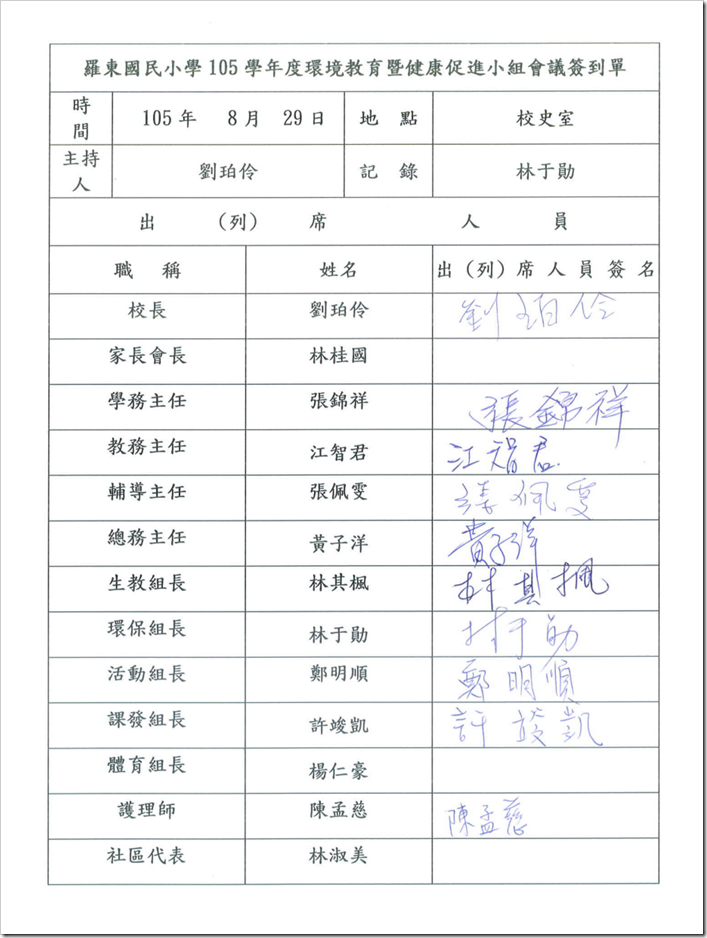 羅東國民小學 105 學年度環境教育暨健康促進小組會議簽到單
時間 105 年 8 月 29 日 地 點 校史室
主持人 劉珀伶 記 錄 林于勛
出 （列） 席 人 員
職 稱 姓名 出（列）席 人 員 簽 名
校長 劉珀伶 劉珀伶
家長會長 林桂國
學務主任 張錦祥 張錦祥
教務主任 江智君 江智君
輔導主任 張佩雯 張佩雯
總務主任 黃子洋 黃子洋
生教組長 林其楓 林其楓
環保組長 林于勛 林于勛
活動組長 鄭明順 鄭明順
課發組長 許竣凱 許竣凱
體育組長 楊仁豪
護理師 陳孟慈 陳孟慈
社區代表 林淑美